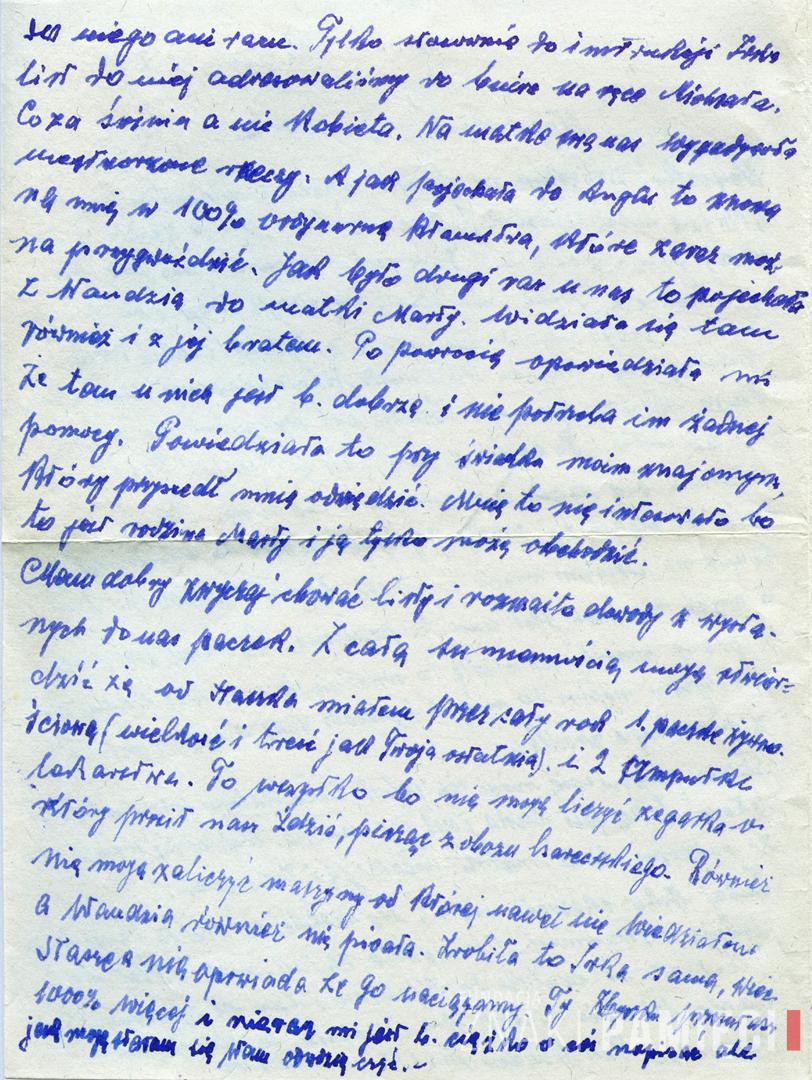 do niego ani razu. Tylko stosownie do instrukcji Irki
list do niej adresowaliśmy do biura na ręce Michała.
Co za świnia a nie kobieta. Na matkę wygadywała
rzeczy. A jak pojechała do Anglii to znowu
na mnie w 100% ordynarne kłamstwa, które zaraz moż-
na przygwoździć. Jak było drugi raz u nas to pojechała
z Wandzią do matki Marty. Widziała się tam
również i z jej bratem. Po powrocie opowiedziała mi
że tam u nich jest b. dobrze i nie potrzeba im żadnej
pomocy. Powiedziała to przy świadku moim znajomym,
który przyszedł mnie odwiedzić. Mnie to nie interesowało bo
to jest rodzina Marty i ją tylko może obchodzić.
Mam dobry zwyczaj chować listy i rozmaite dowody z wysła-
nych do nas paczek. Z całą sumiennością mogę stwier-
dzić że od Heńka miałem przez cały rok 1. paczkę żywno-
ściową (wielkość i treść jak Twoja ostatnia). i 2 Ampułki
lekarstwa. To wszystko bo nie mogę liczyć zegarka o
który prosił nas Zdzić, pisząc z obozu harcerskiego. Również
nie mogę zaliczyć maszyny od której nawet nie wiedziałem
a Wandzia również nie pisała. Zrobiła to Irka sama,
Starsza nie opowiada że go naciągamy. Ty Heńka
1000% więcej i nieraz mi jest b. ciężko o coś naprosić ale
jak mogę staram się Wam odwdzięczyć.-
PAMIĘCI